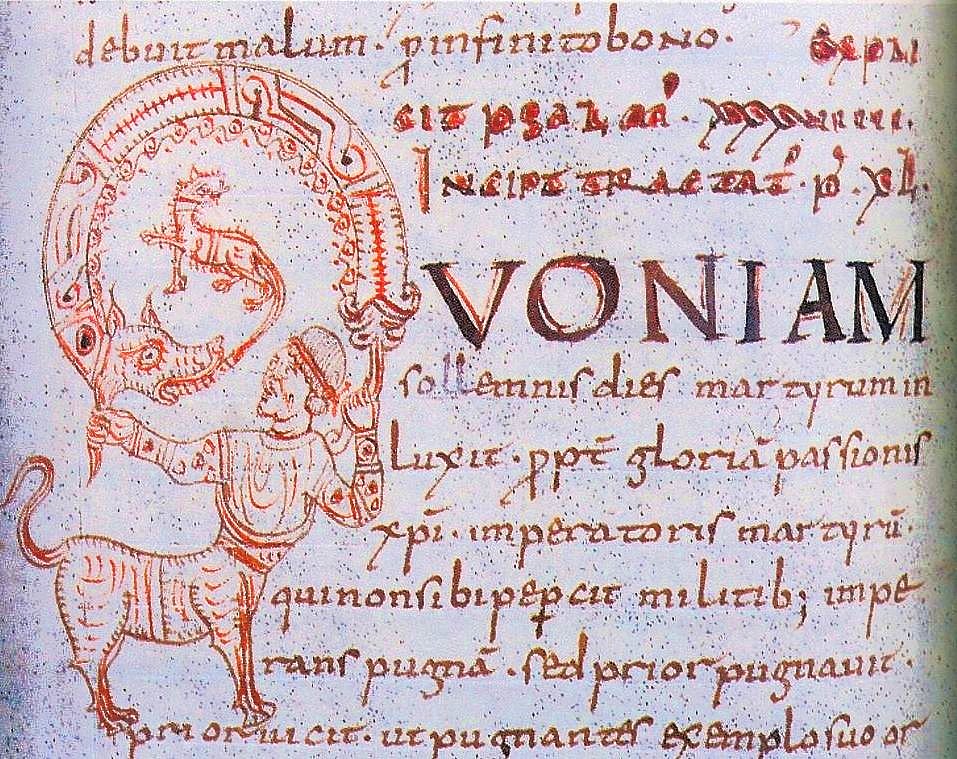 debuit malum· p̱ infinito bono· Expli
cit psalm̄· xxxuiiii.
Incipt tractat̄· p̄· xl.
QVONIAM
sollemnis dies martyrum in
luxit · ꝓpt̄ gloriā passionis
xpī· imperatoris martyrū·
qui non sibi peꝑcit militib; impe
rans pugnā · sed prior pugnauit ·
prior uicit· ut pugnantes exemplo suo or